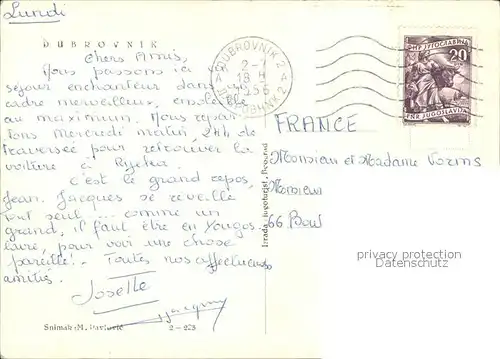 Lundi
DUBROVNIK
Chers Amis,
Nous passons ici
séjour enchanteur dans un
cadre merveilleux, ensoleillé
au maximum. Nous repar
tons Mercredi matin, 24h de
traversée pour retrouver la
voiture à Rijeka.
c'est le grand repos,
Jean Jacques se réveille
tout seul ... comme un
grand, il faut être en Yougos
lavie, pour voir une chose
pareille!. Toutes nos affectueuses
amitiés.
Josette
Snimak: M. Pavlović 2-273
Izrada "Jugoturist", Beograd
DUBROVNIK 2
2-7
18 H
1956
ДУБРОВНИК 2
ФНР ЈУГОСЛАВИЈА
20
FNR JUGOSLAVIJA
FRANCE
Monsieur et Madame
66 Boul
privacy protection
Datenschutz